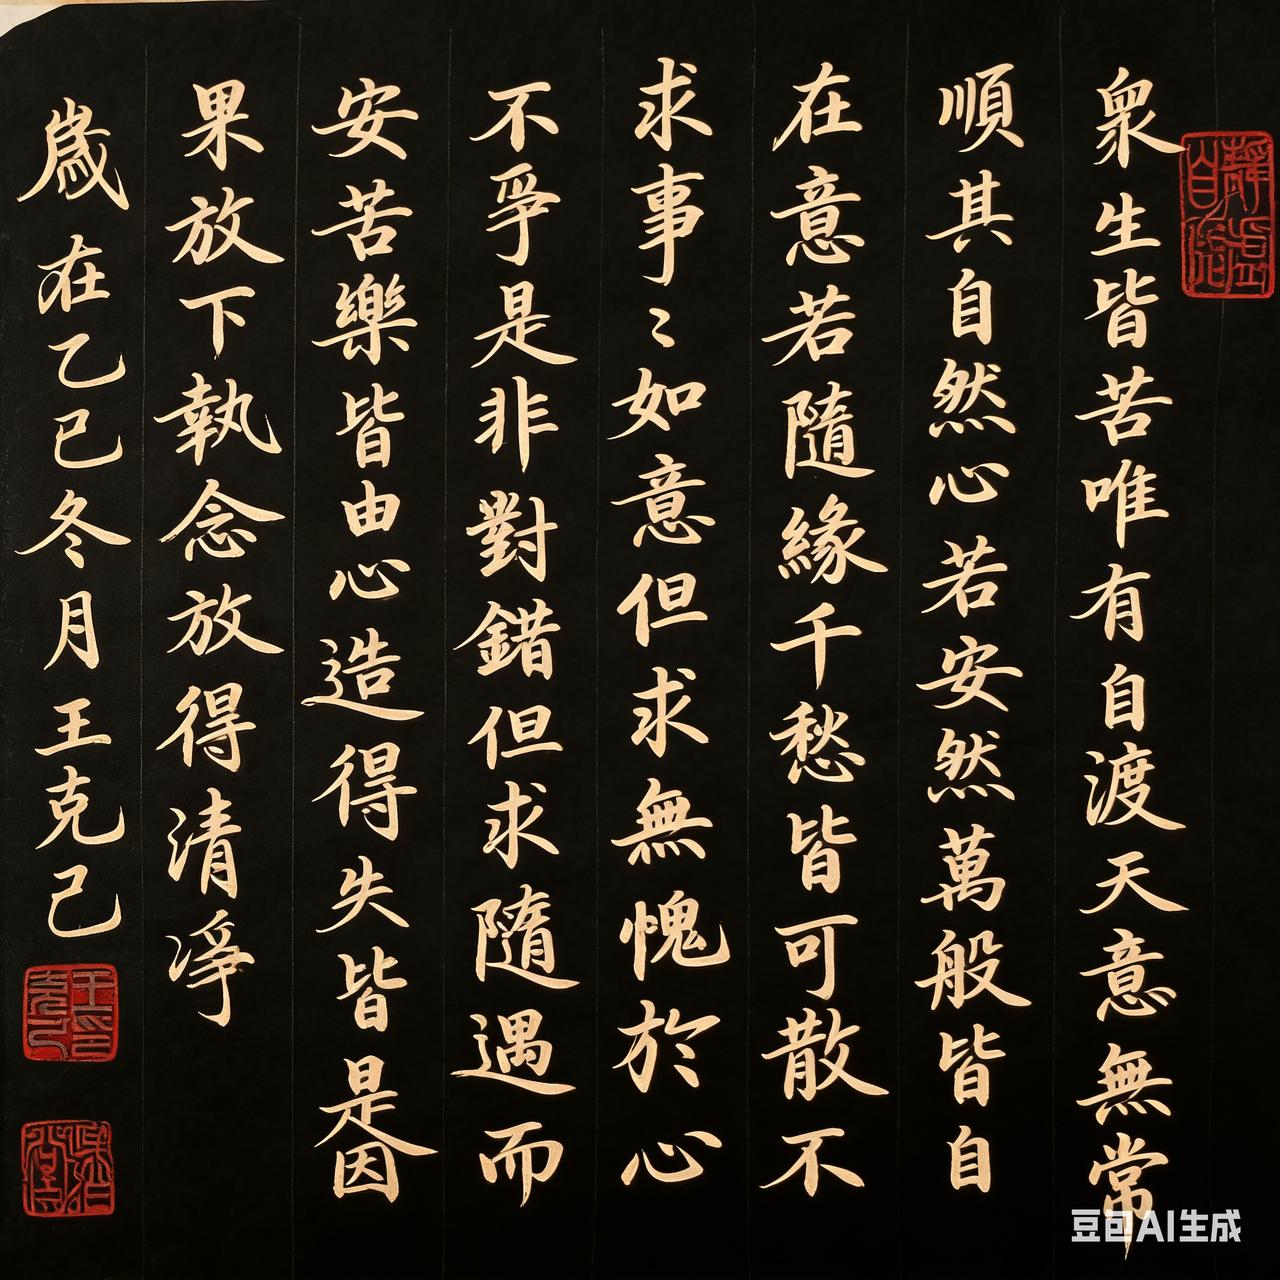 衆生皆苦唯有自渡天意無常
順其自然心若安然萬般皆自
在意若隨緣千愁皆可散不
求事〻如意但求無愧於心
不爭是非對錯但求隨遇而
安苦樂皆由心造得失皆是因
果放下執念放得清淨
歲在乙巳冬月王克己
豆包AI生成